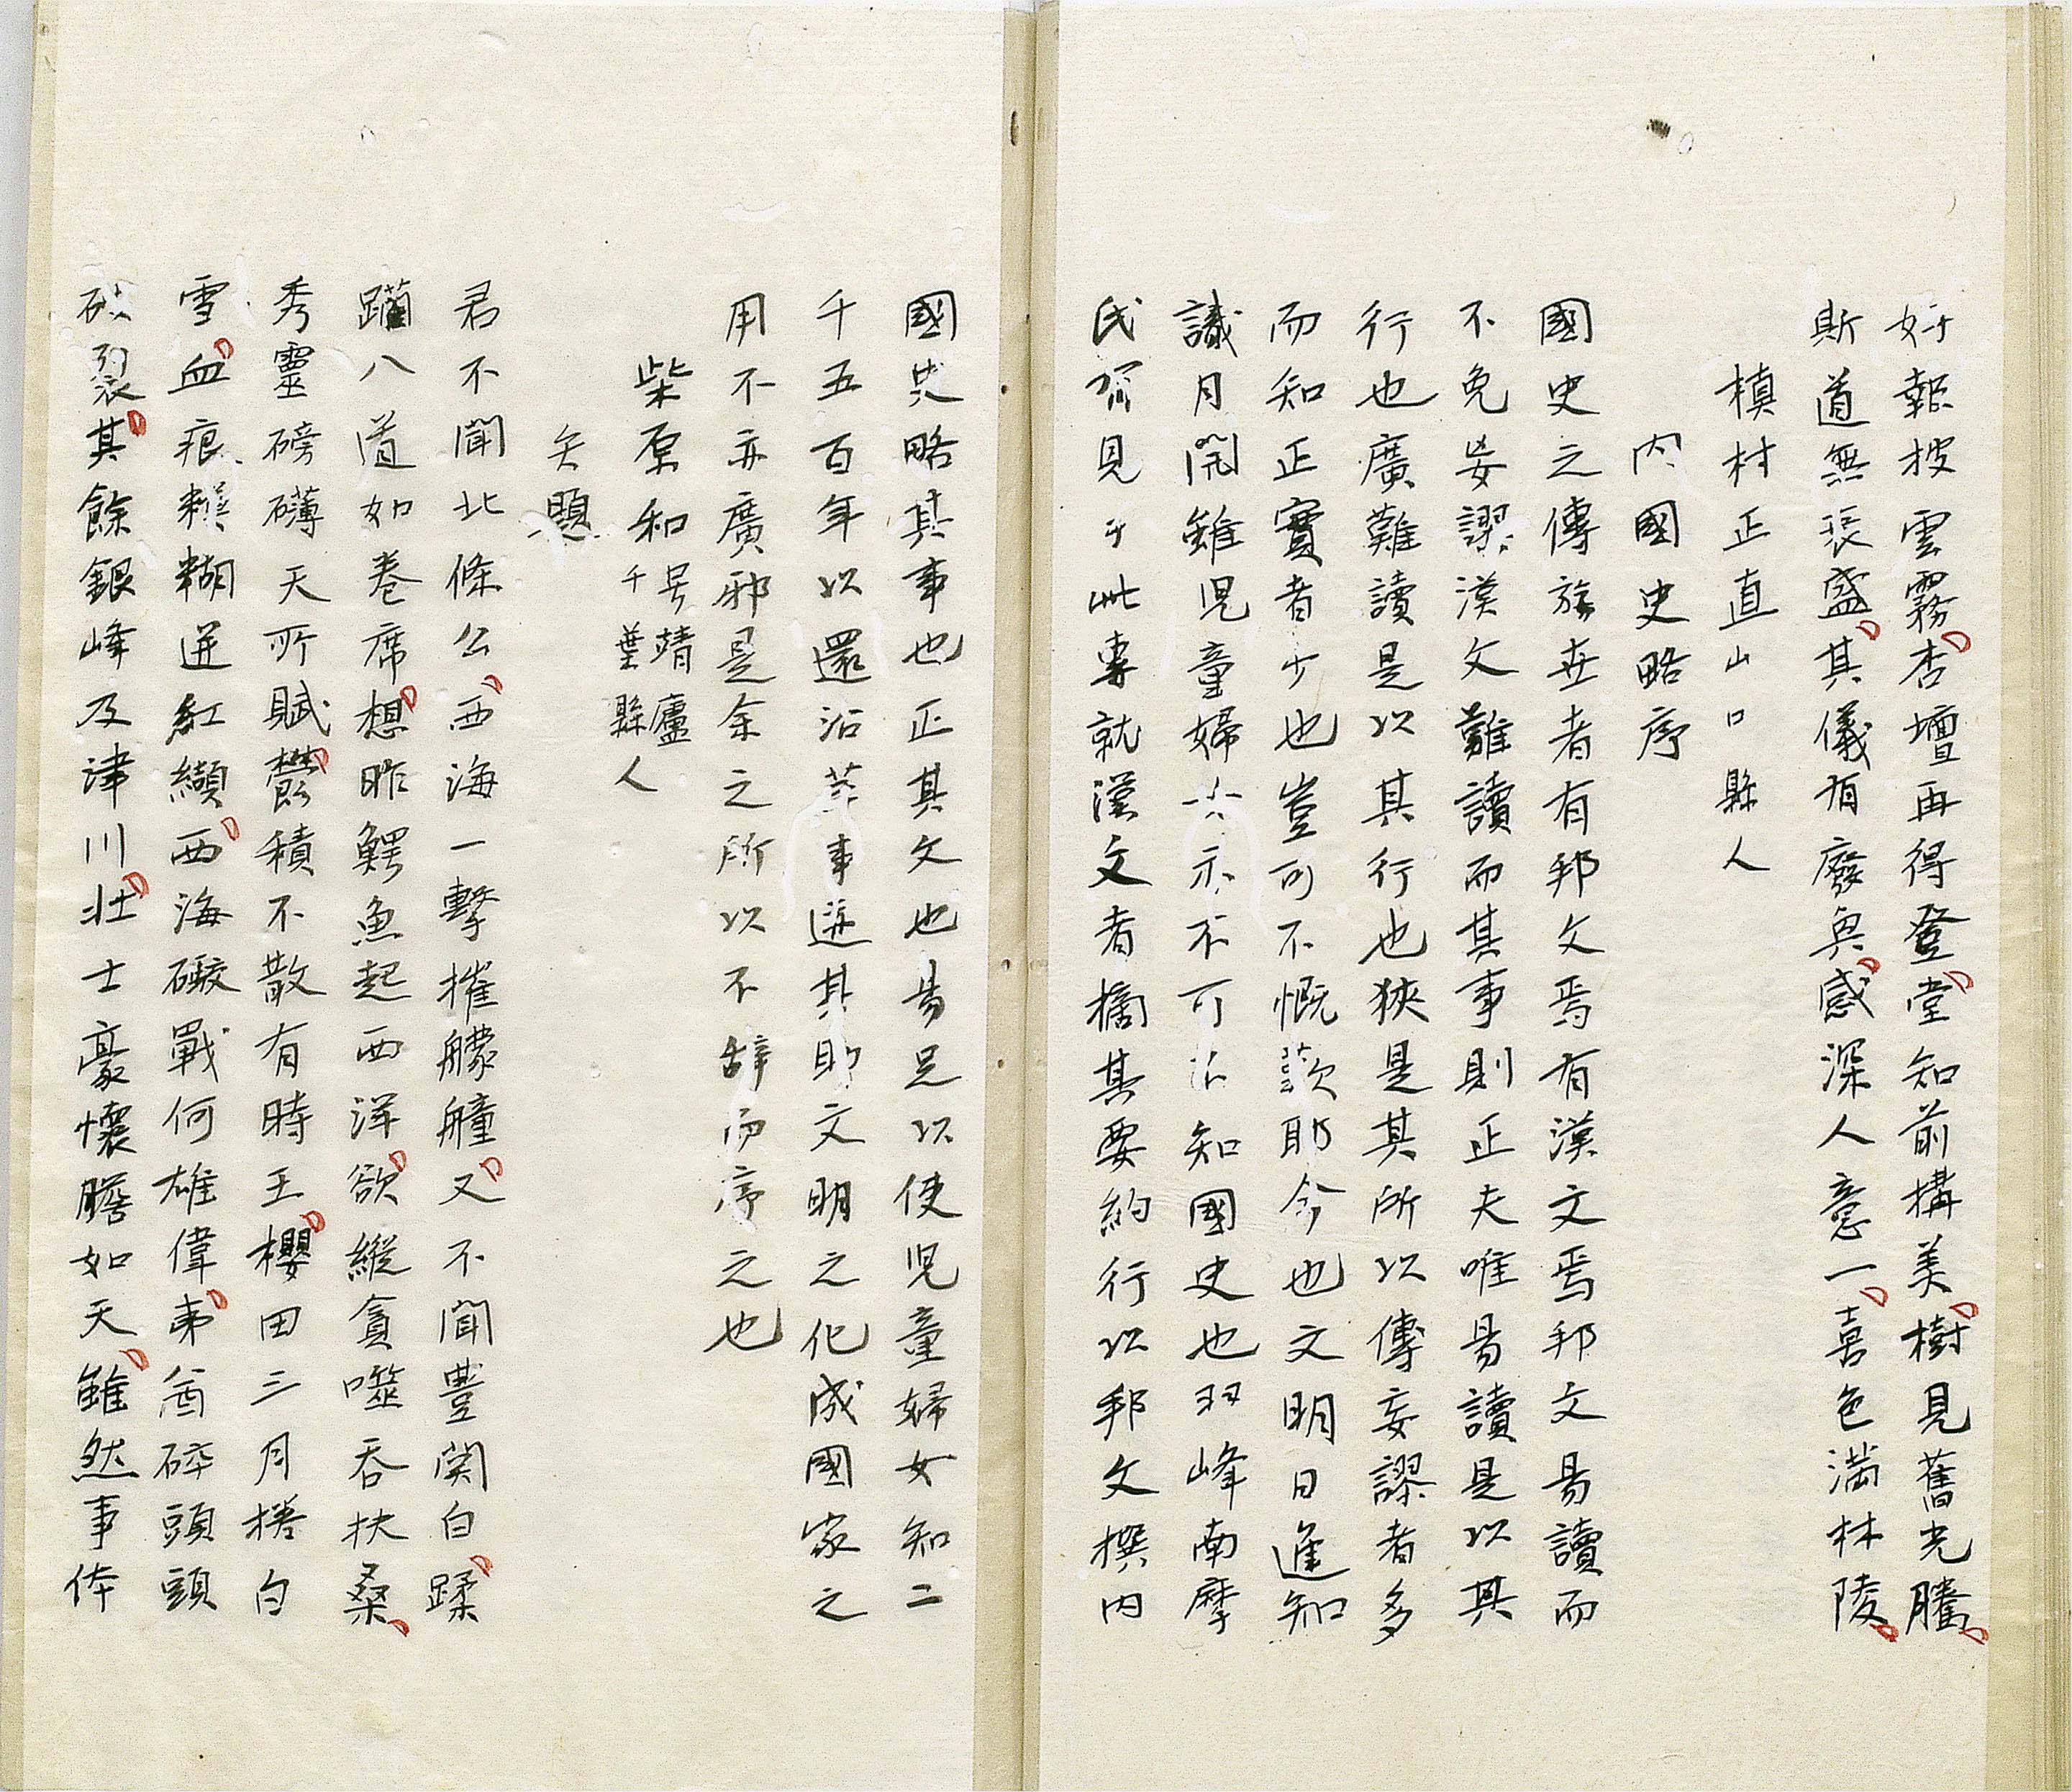 好報披雲霧杏壇再得登堂知前構美樹見舊光騰
斯道無張盛其儀有廢興感深人意一喜色満林陵
槙村正直山口縣人
内國史略序
國史之傳於世者有邦文焉有漢文焉邦文易讀而
不免妄謬漢文難讀而其事則正夫唯易讀是以其
行也廣難讀是以其行也狹是其所以傳妄謬者多
而知正實者少也豈可不慨歎耶今也文明日進知
識月開雖児童婦女亦不可不知國史也羽峰南摩
氏有見于此専就漢文者摘其要約行以邦文撰内
國史略其事也正其文也易足以使児童婦女知二
千五百年以還治革事迹其助文明之化成國家之
用不亦廣邪是余之所以不辞而序之也
柴原和号靖廬千葉縣人
失題
君不聞北條公西海一擊摧艨艟又不聞豊関白蹂
躪八道如巻席想昨鰐魚起西洋欲縦貪噬呑扶桑
秀靈磅礴天所賦欝積不散有時王櫻田三月捲白
雪血痕糢糊迸紅纈西海礟戰何雄偉夷酋碎頭頭
破裂其餘銀峰及津川壮士豪懐膽如天雖然事体